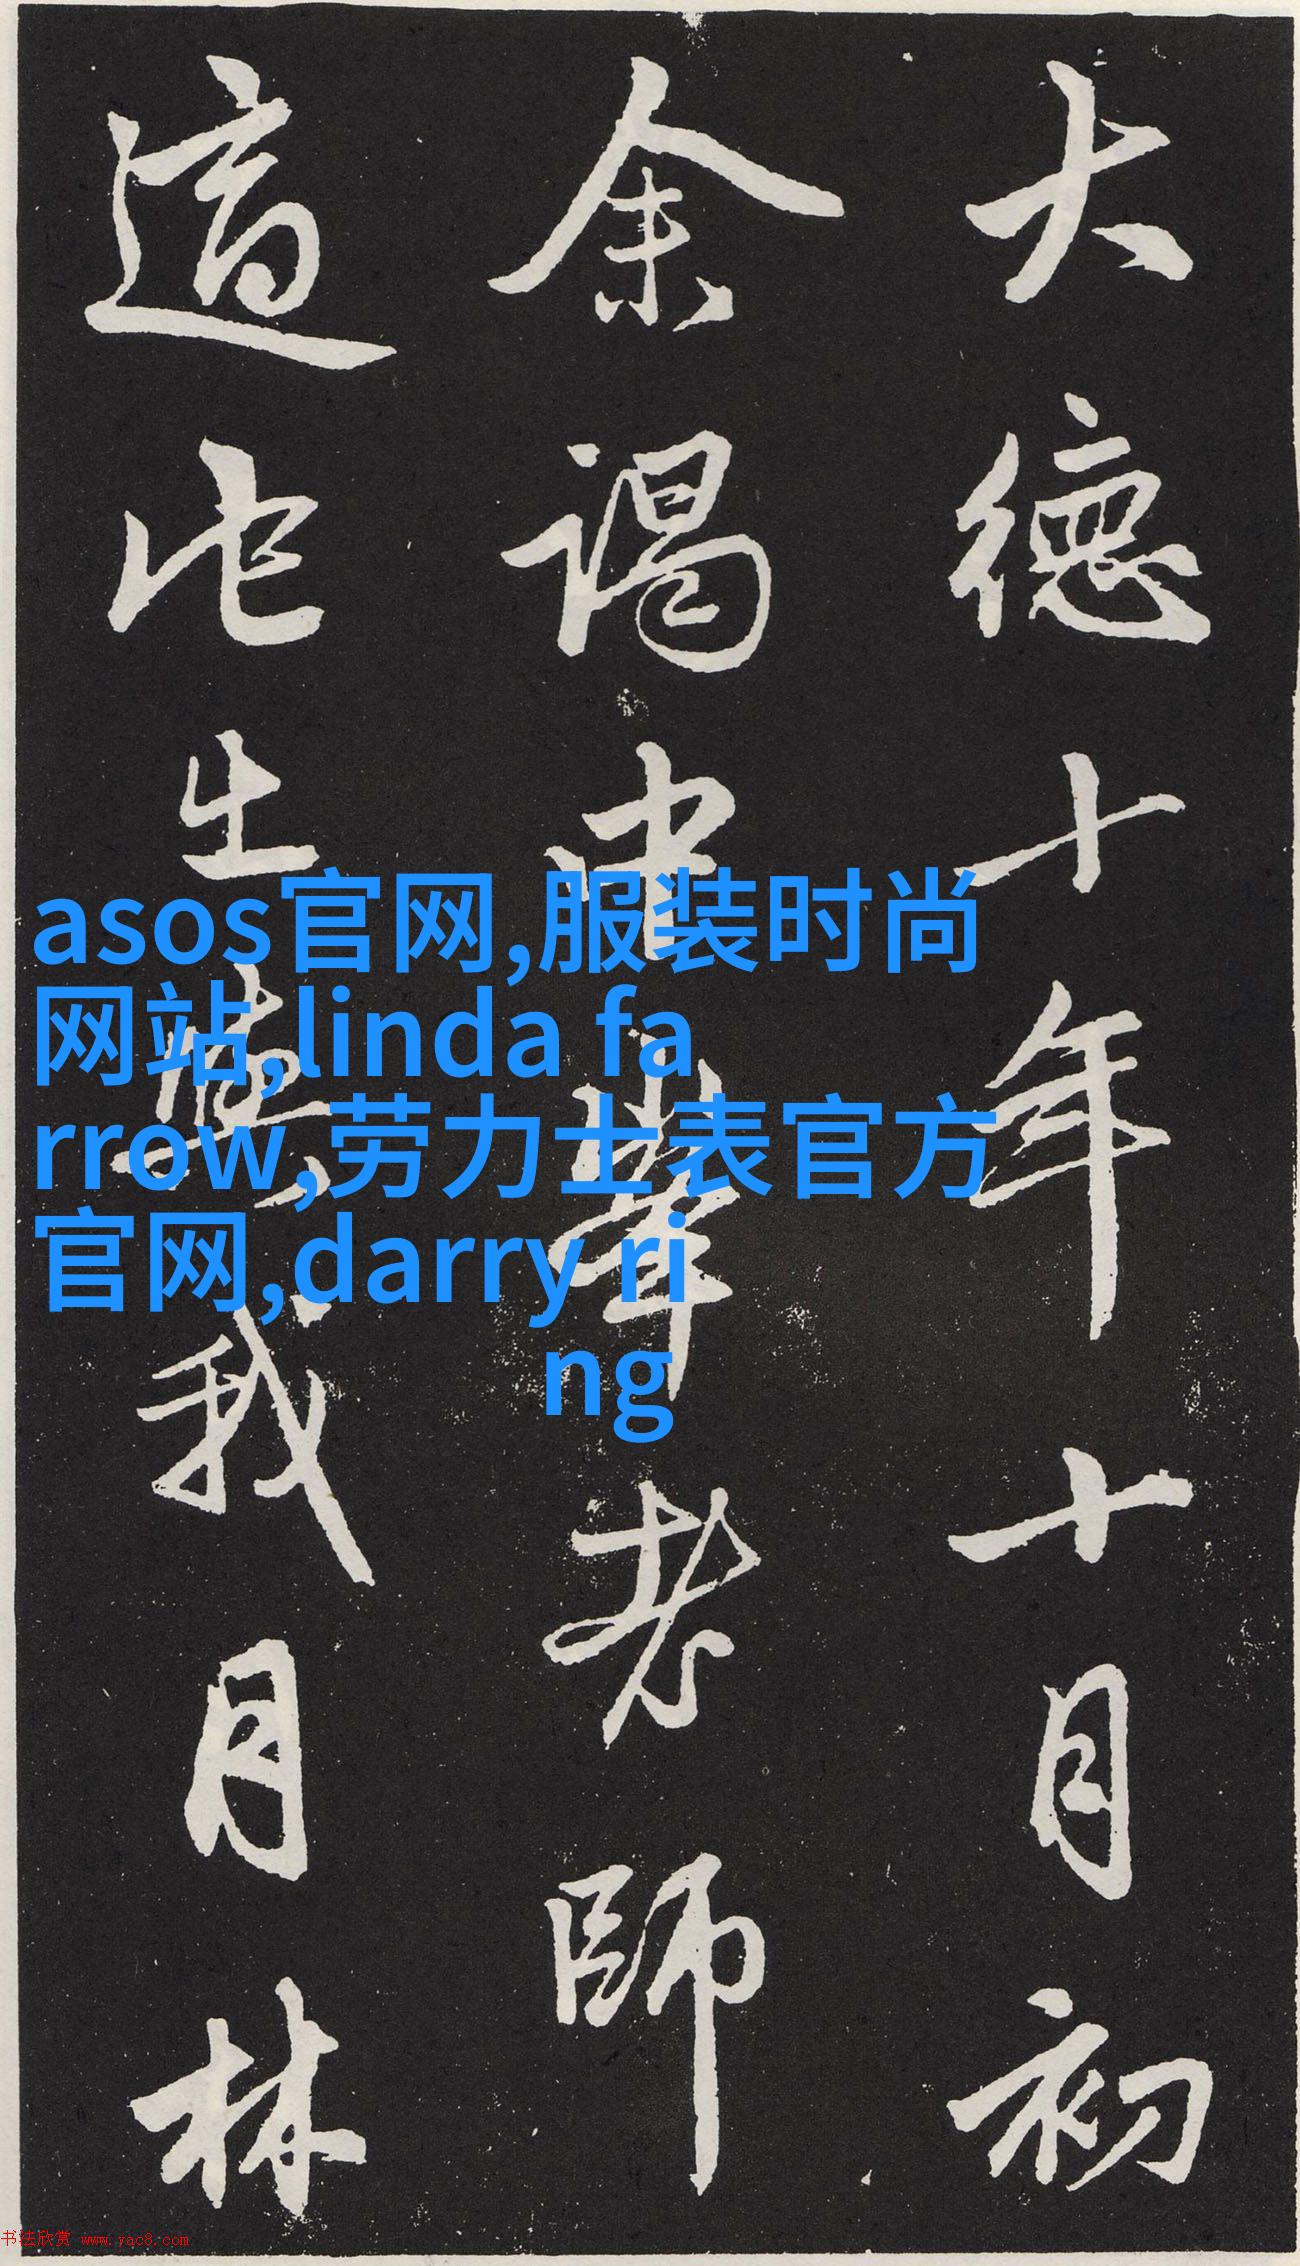 大德十年十月初
余谒中峯老師
適此出示我月林
asos官网,服装时尚
网站,linda fa
rrow,劳力士表官方
官网,darry ri
ng
书法欣赏 www.yac8.com